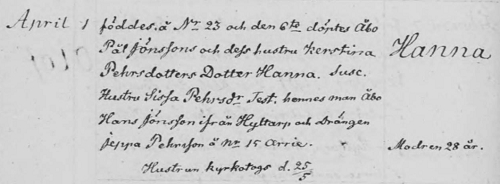 April 1 föddes. å Nr 23 och den 6te döptes Åbo
Pål Jönssons och dess hustru Kerstina
Hanna
Pehrsdotters Dotter Hanna. Susc.
Hustru Sissa Pehrsdr Test. hennes man Åbo
Hans Jönsson ifrån Hyltarp och Drängen
Jeppa Pehrsson å nr 15 Arrie.
Modren 28 år.
Hustrun kyrkotogs d. 25/5